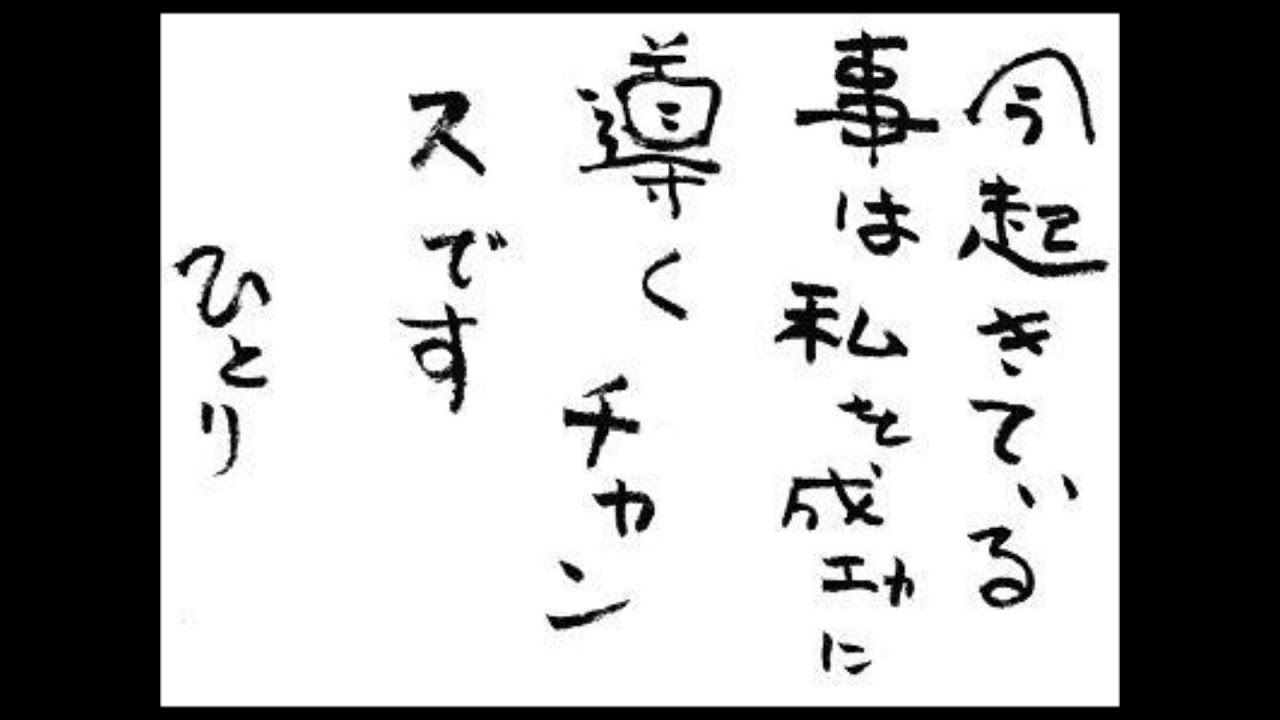 今起きている
事は私を成功に
導くチカン
スです
ひとり